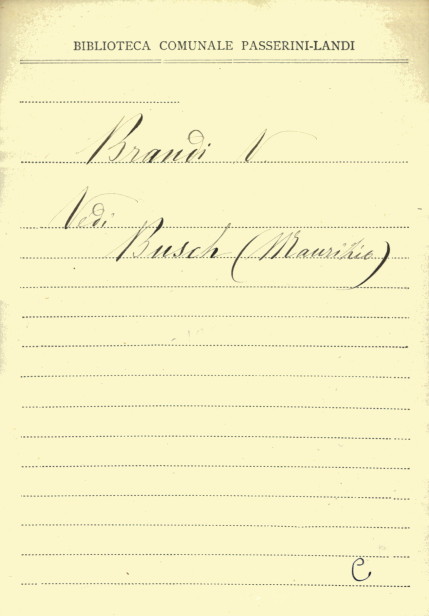 BIBLIOTECA COMUNALE PASSERINI-LANDI
Brandi V
Vedi
Busch (Maurizio)
C